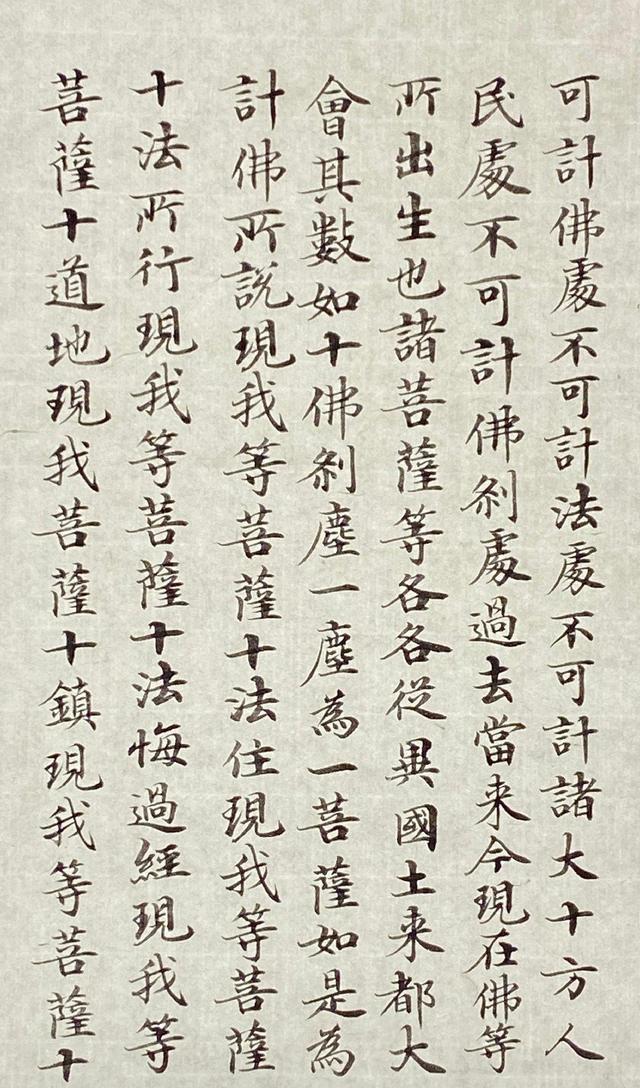 可計佛處不可計法處不可計諸大十方人
民處不可計佛刹處過去當来今現在佛等
所出生也諸菩薩等各各從異國土来都大
會其數如十佛刹塵一塵為一菩薩如是為
計佛所說現我等菩薩十法住現我等菩薩
十法所行現我等菩薩十法悔過經現我等
菩薩十道地現我菩薩十鎮現我等菩薩十